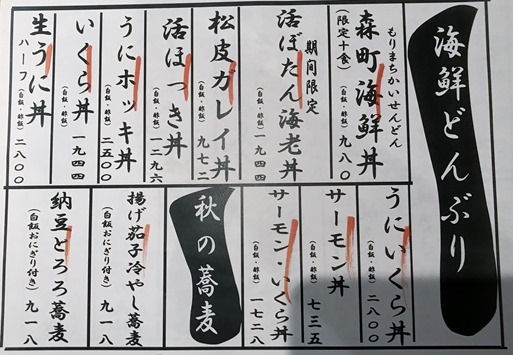 海鮮どんぶり
もりまちかいせんどん
森町海鮮丼
(限定十食)
(白飯・酢飯) 九八〇
期間限定
活ぼたん海老丼
(白飯・酢飯) 一九四四
松皮ガレイ丼
(白飯・酢飯) 九七二
活ほっき丼
(白飯・酢飯) 一二九六
うにホッキ丼
(白飯・酢飯) 二五〇〇
いくら丼
(白飯・酢飯) 一九四四
生うに丼
ハーフ (白飯・酢飯) 二八〇〇
うにいくら丼
(白飯・酢飯) 二八〇〇
サーモン丼
(白飯・酢飯) 七三五
サーモン・いくら丼
(白飯・酢飯) 一七二八
秋の蕎麦
揚げ茄子冷やし蕎麦
(白飯おにぎり付き) 九一八
納豆とろろ蕎麦
(白飯おにぎり付き) 九一八